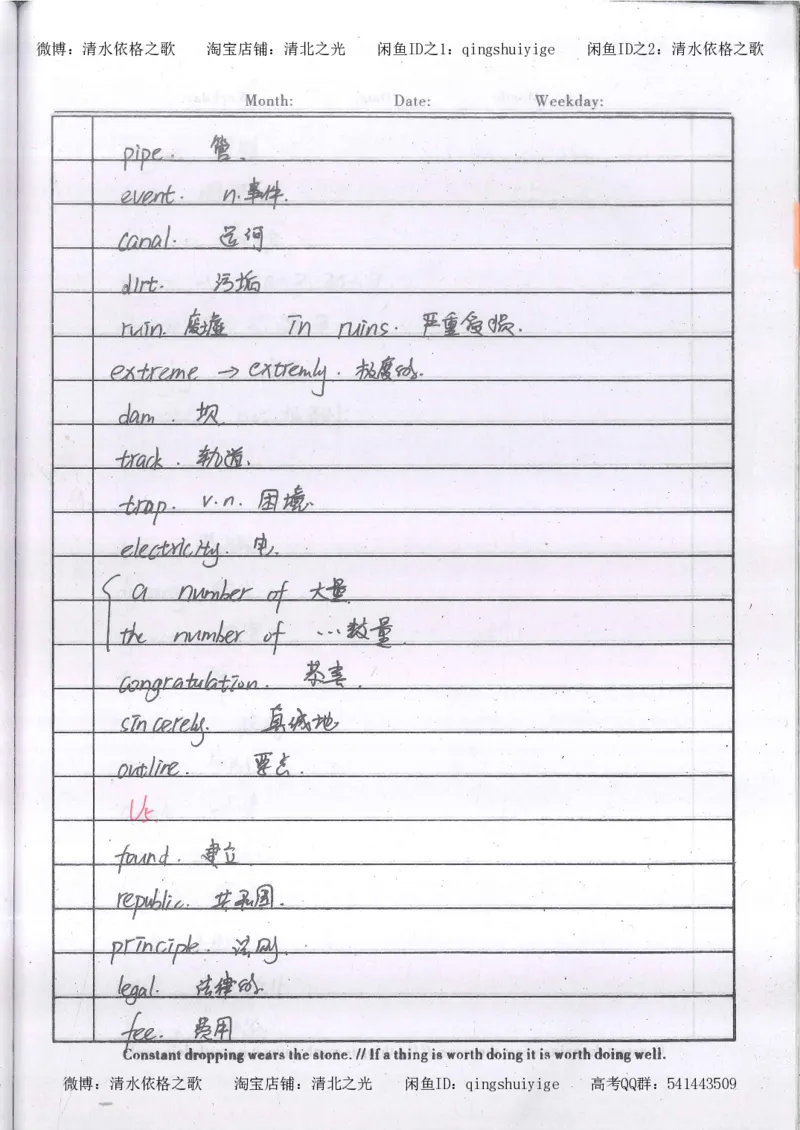 微博：清水依格之歌 淘宝店铺：清北之光 闲鱼ID之1：qingshuiyige 闲鱼ID之2：清水依格之歌
Month: Date: Weekday:
pipe. 管.
event. n.事件.
canal. 运河
dirt. 污垢
ruin. 废墟 in ruins. 严重负损.
extreme → extremly. 极度的.
dam. 坝.
track. 轨道.
trap. v.n. 困境.
electricity. 电.
a number of 大量
the number of …数量
congratulation. 恭喜.
sincerely. 真诚地
outline. 要点.
U5.
found. 建立
republic. 共和国.
principle. 法则.
legal. 法律的.
fee. 费用
Constant dropping wears the stone. // If a thing is worth doing it is worth doing well.
微博：清水依格之歌 淘宝店铺：清北之光 闲鱼ID：qingshuiyige 高考QQ群：541443509